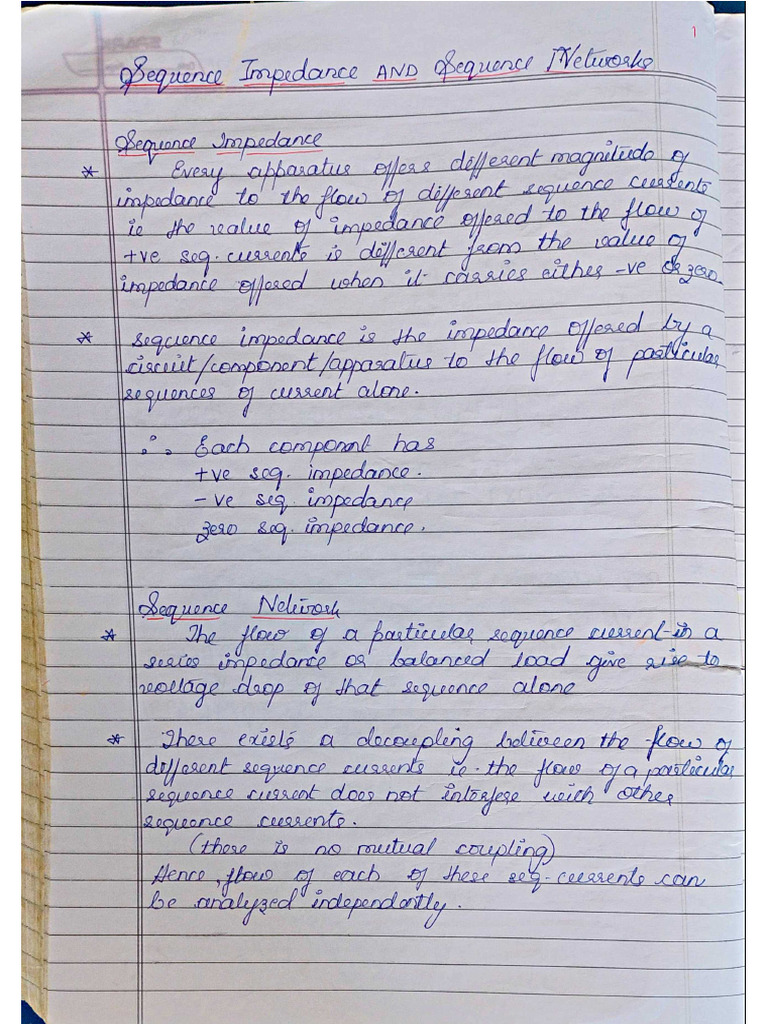 1
Sequence Impedance AND Sequence Networks
Sequence Impedance
* Every apparatus offers different magnitude of
impedance to the flow of different sequence currents
ie the value of impedance offered to the flow of
+ve seq. currents is different from the value of
impedance offered when it carries either -ve or zero.
* sequence impedance is the impedance offered by a
circuit/component/apparatus to the flow of particular
sequences of current alone.
∴ Each component has
+ve seq. impedance.
-ve seq. impedance
zero seq. impedance.
Sequence Network
* The flow of a particular sequence current in a
series impedance or balanced load give rise to
voltage drop of that sequence alone
* There exists a decoupling between the flow of
different sequence currents ie. the flow of a particular
sequence current does not interfere with other
sequence currents.
(there is no mutual coupling)
Hence, flow of each of these seq. currents can
be analyzed independantly.